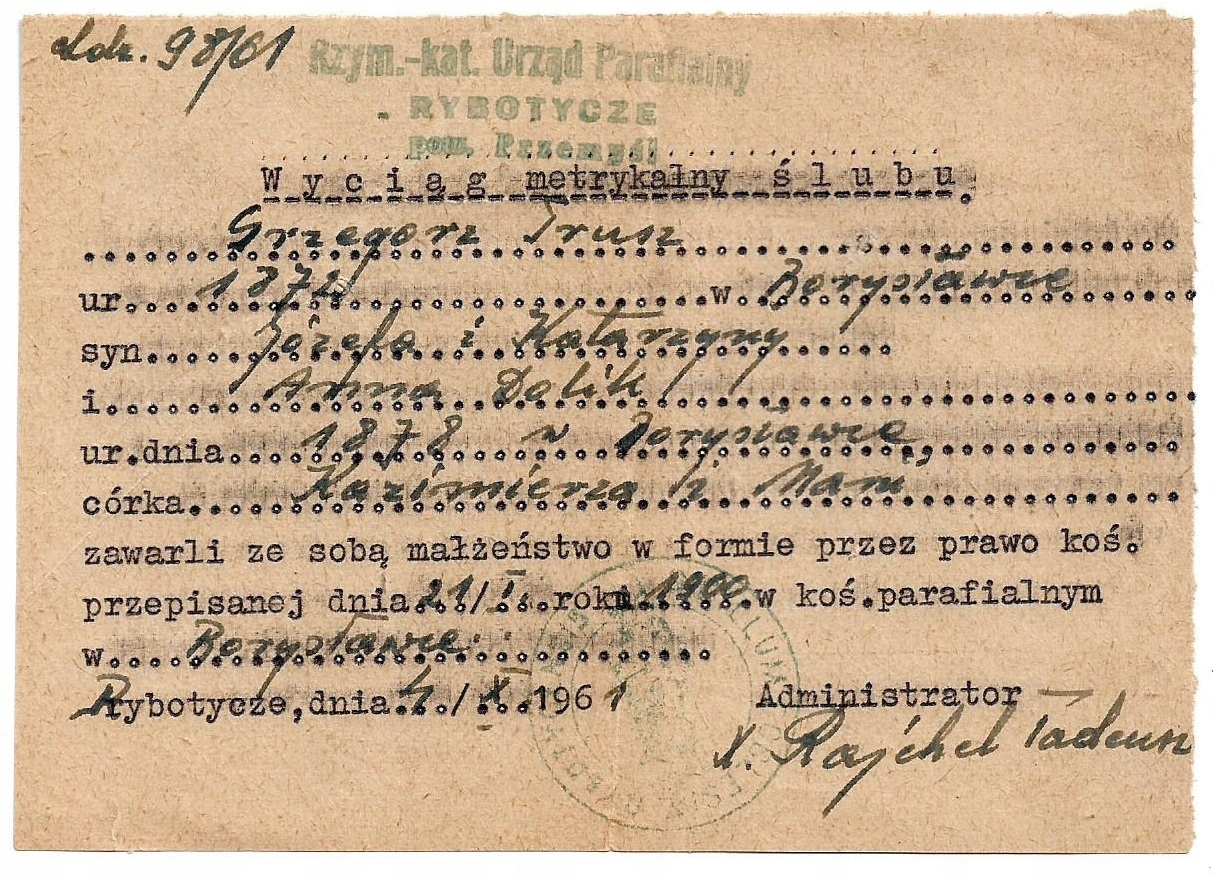 Ldz. 98/61
Rzym.-kat. Urząd Parafialny
RYBOTYCZE
pow. Przemyśl
Wyciąg metrykalny ślubu.
Grzegorz Trusz
ur. 1872 w Borysławce
syn Józefa i Katarzyny
i Anna Dolik
ur.dnia 1878 w Borysławce,
córka Kazimierza i Marii
zawarli ze sobą małżeństwo w formie przez prawo koś.
przepisanej dnia 21/I. roku 1900 w koś.parafialnym
w Borysławce
Rybotycze, dnia 4/X. 1961 Administrator
X. Rajchel Tadeusz